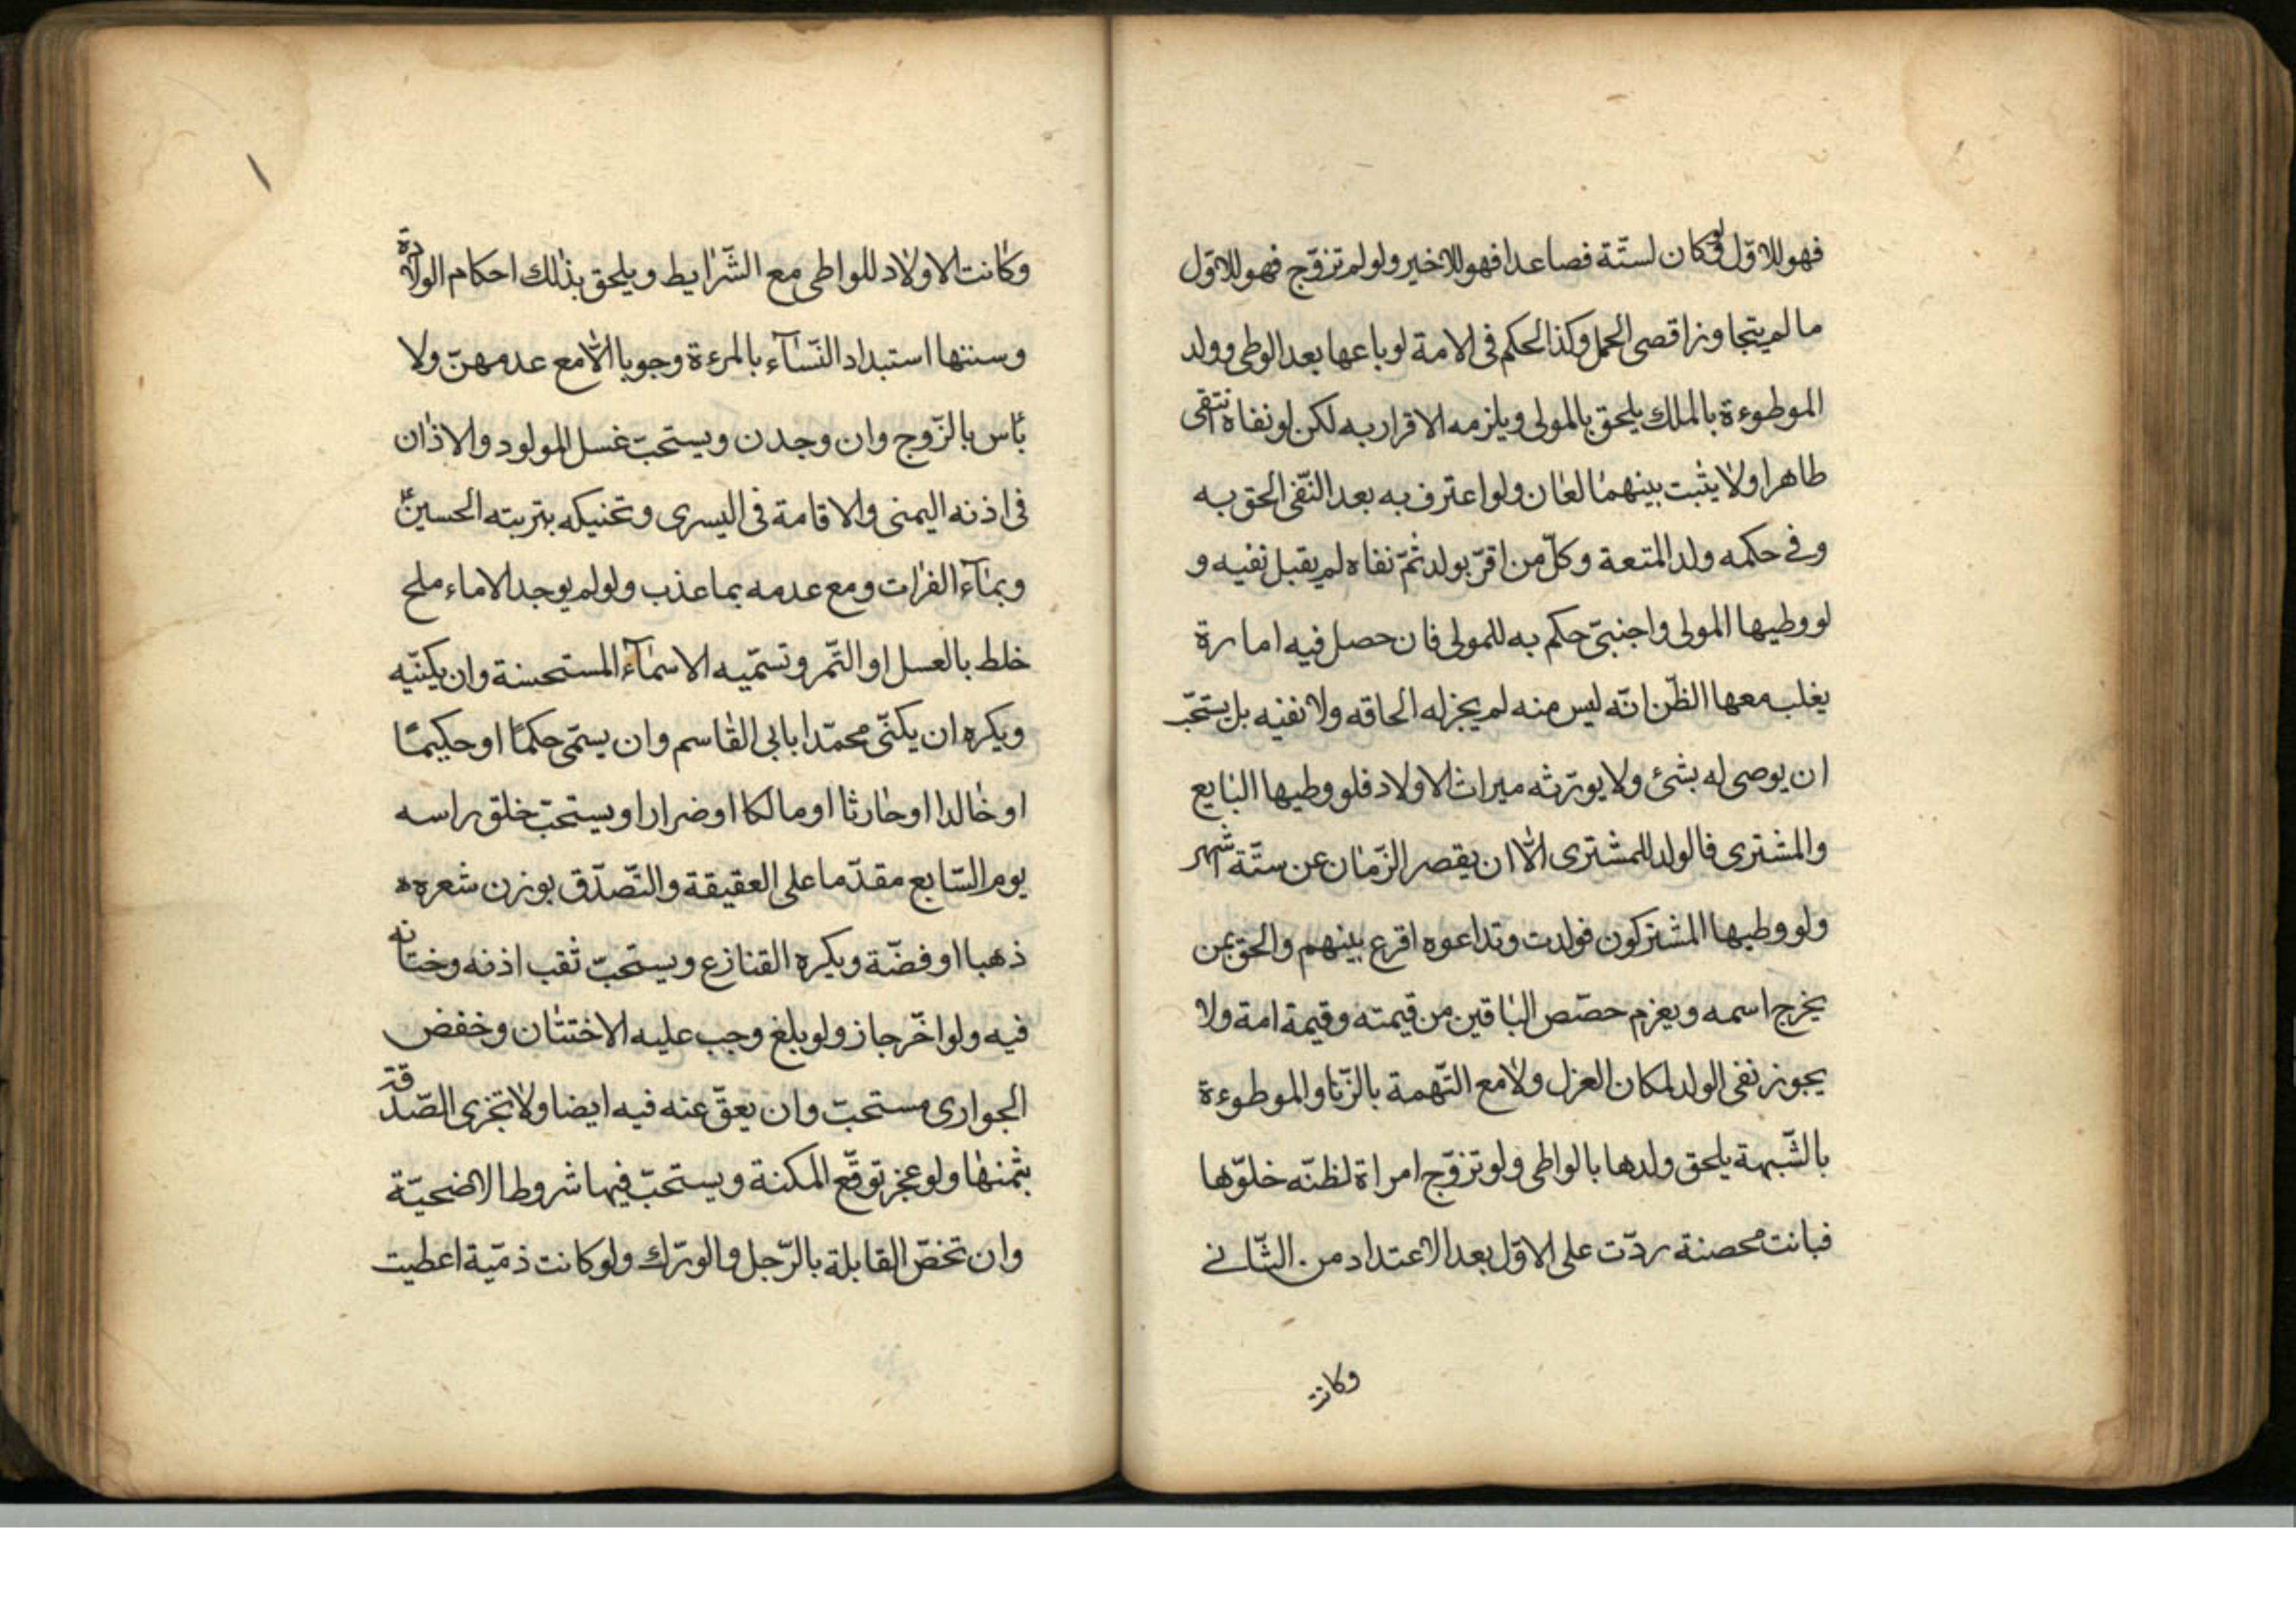 فهو للاوّل ولو كان لستّة فصاعدا فهو للاخير ولو لم تزوّج فهو للاوّل
ما لم يتجاوز اقصى الحمل وكذا لحكم فى الامة لو باعها بعد الوطى وولد
الموطوءة بالملك يلحق بالمولى ويلزمه الاقرار به لكن لو نفاه انتقى
طاهرا ولا يثبت بينهما لعان ولو اعترف به بعد النّفى الحق به
وفى حكمه ولد المتعة وكلّ من اقرّ بولد ثمّ نفاه لم يقبل نفيه و
لو وطيها المولى واجنبىّ حكم به للمولى فان حصل فيه امارة
يغلب معها الظّن انّه ليس منه لم يجز له الحاقه ولا نفيه بل يستحبّ
ان يوصى له بشئ ولا يورّثه ميراث الاولاد فلو وطيها البايع
والمشترى فالولد للمشترى الّا ان يقصر الزّمان عن ستّة اشهر
ولو وطيها المشتركون فولدت وتداعوه اقرع بينهم والحق بمن
يخرج اسمه ويغرم حصّص الباقين من قيمته وقيمة امة ولا
يجوز نفى الولد لمكان العزل ولا مع التّهمة بالزّنا والموطوءة
بالشّبهة يلحق ولدها بالواطى ولو تزوّج امراة لظنّه خلوّها
فبانت محصنة ردّت على الاوّل بعد الاعتداد من الثّانى
وكانت
وكانت الاولاد للواطى مع الشّرايط ويلحق بذلك احكام الولادة
وسننها استبداد النّسآء بالمرءة وجوبا الّا مع عدمهنّ ولا
باس بالزّوج وان وجدن ويستحبّ غسل المولود والاذان
فى اذنه اليمنى والاقامة فى اليسرى وتحنيكه بتربته الحسينؑ
وبمآء الفرات ومع عدمه بما عذب ولو لم يوجد الا ماء ملح
خلط بالعسل او التّمر وتسمّيه الاسمآء المستحسنة وان يكنّيه
ويكره ان يكنّى محمّدا بابى القاسم وان يسمّى حكمًا او حكيمًا
او خالدا او حارثا او مالكا او ضرارا ويستحبّ خلق راسه
يوم السّابع مقدّما على العقيقة والتّصدّق بوزن شعره
ذهبا او فضّة ويكره القنازع ويستحبّ ثقب اذنه وختانه
فيه ولو اخّر جاز ولو بلغ وجب عليه الاختتان وخفض
الجوارى مستحبّ وان يعقّ عنه فيه ايضا ولا تجزى الصّدقة
بثمنها ولو عجز توقّع المكنة ويستحبّ فيها شروط الاضحيّة
وان تخصّ القابلة بالرّجل والورّك ولو كانت ذمّية اعطيت